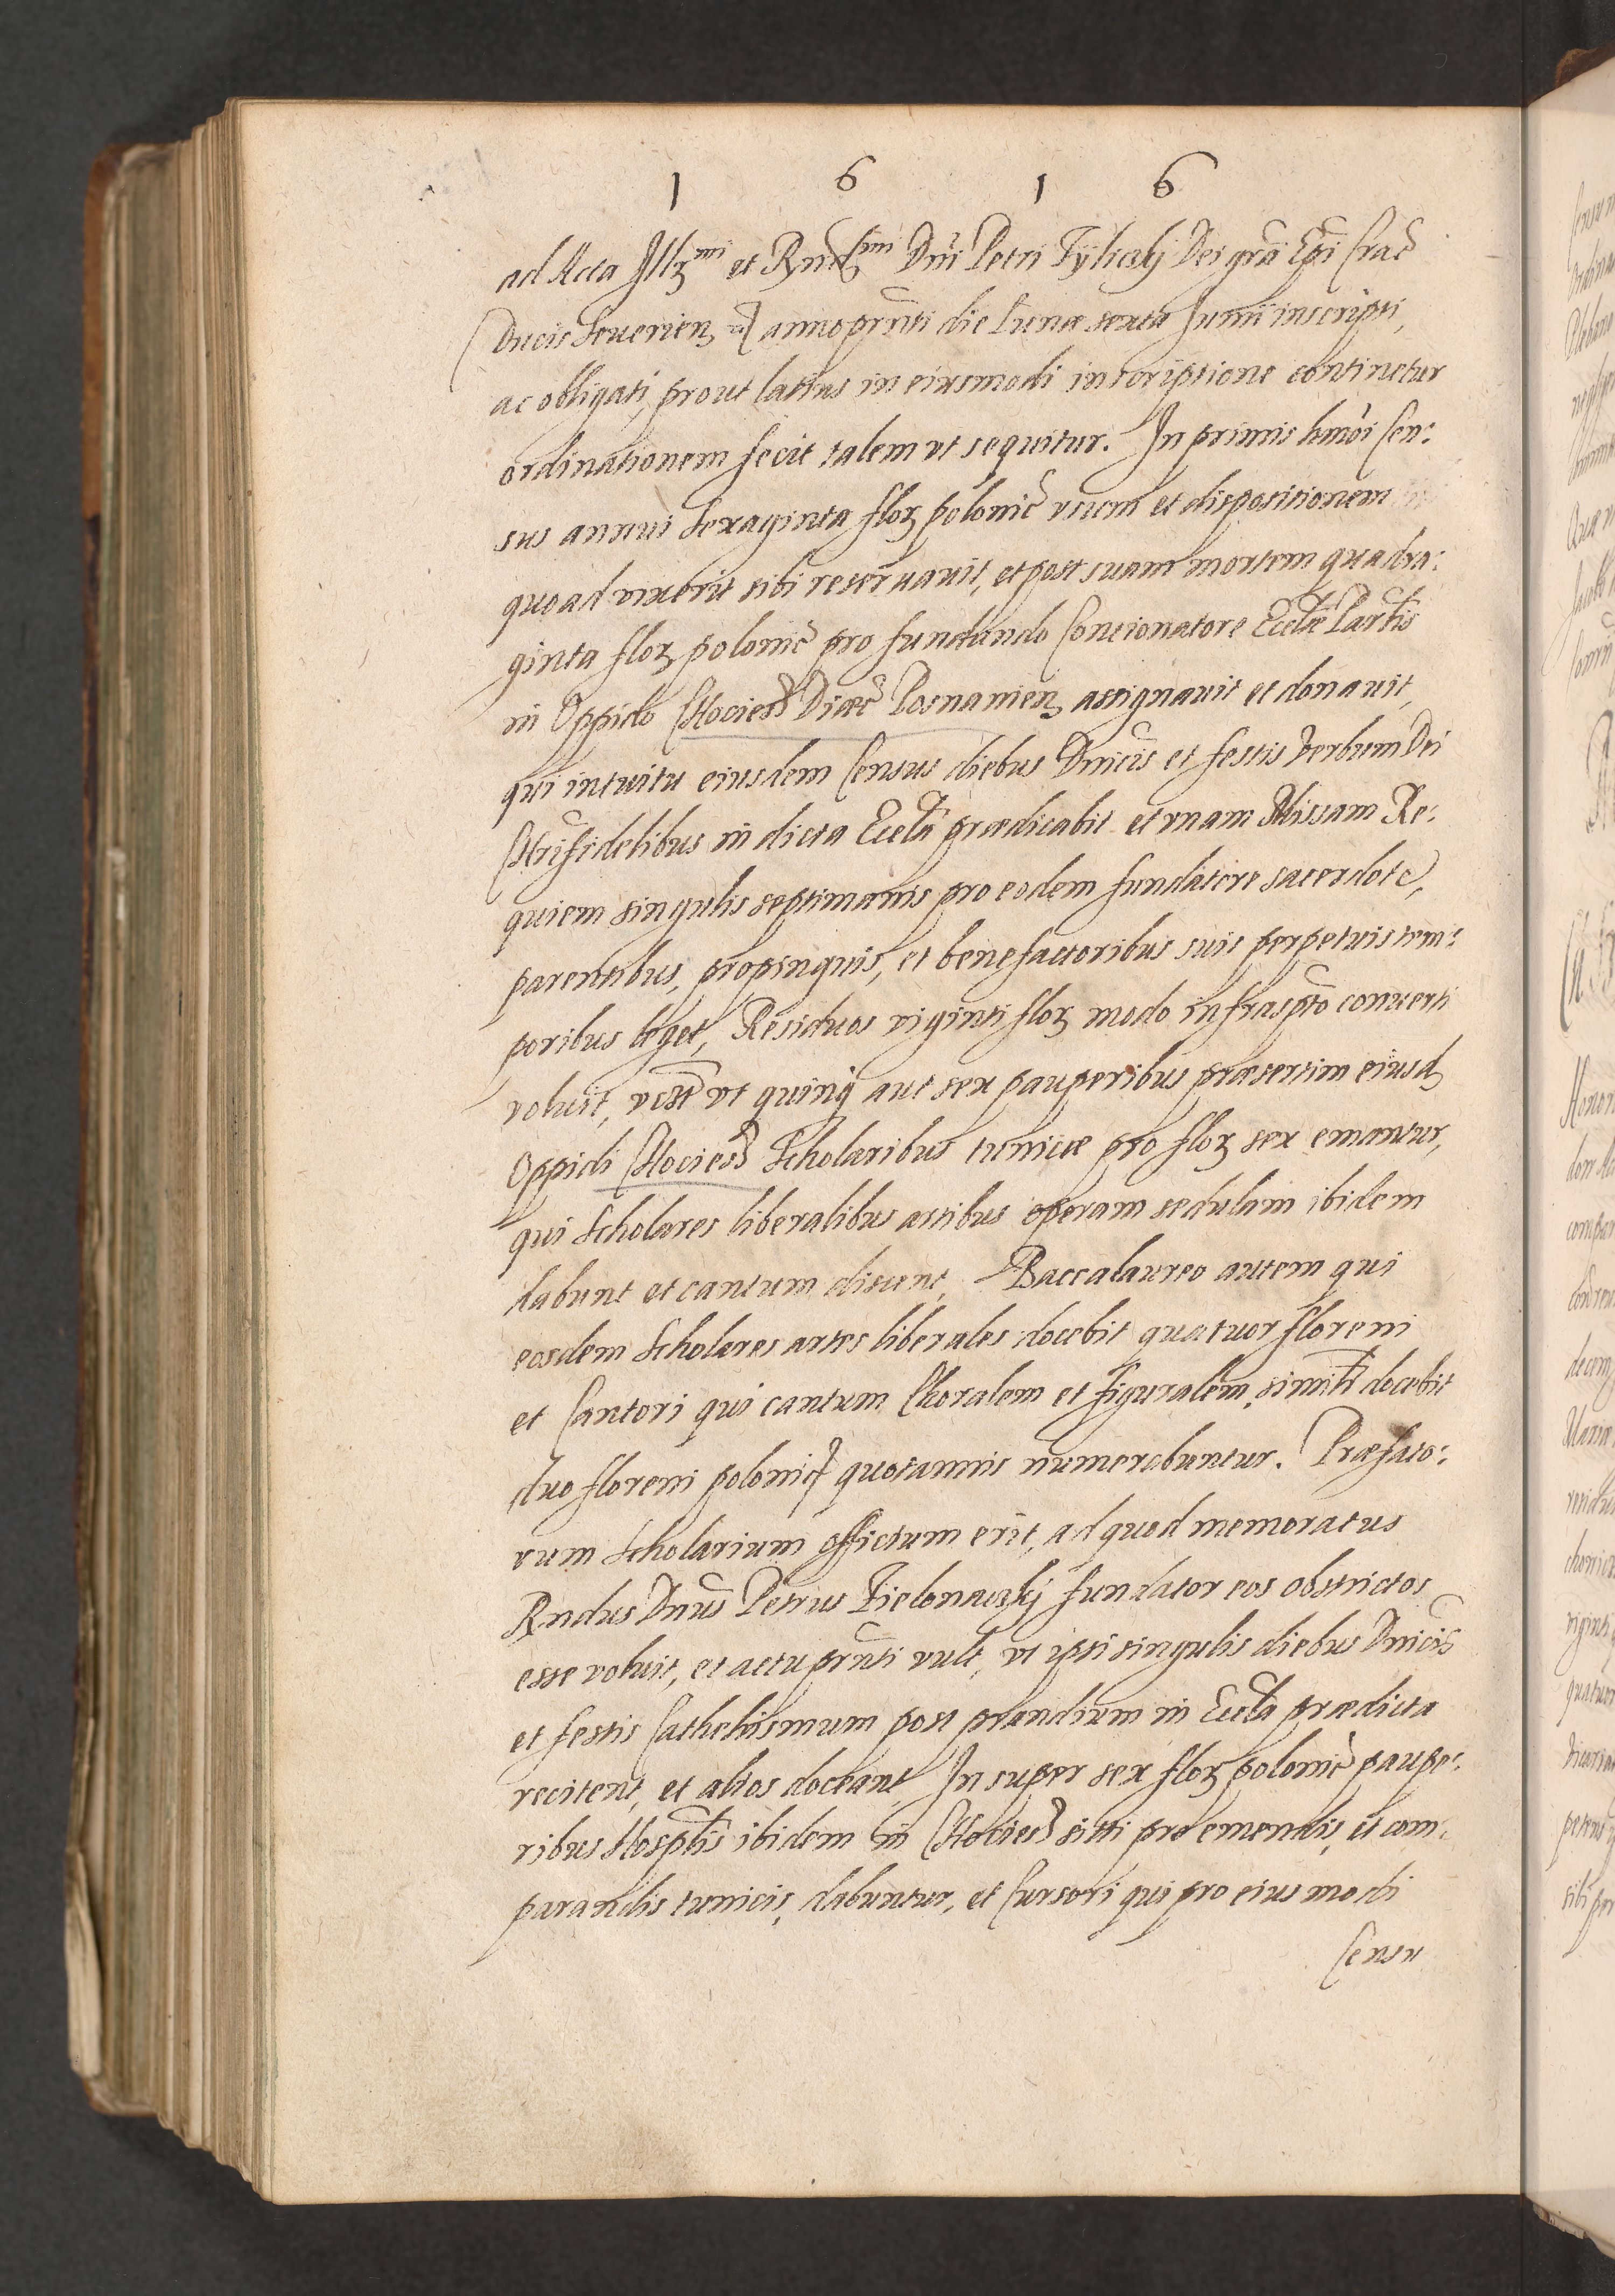 1 6 1 6
ad Acta Illmi et Rndssmi Dni Petri Tylicky Dei gra Epi Crac
Ducis Seuerien annoprnti die Lunæ sexta Junii inscripti,
ac obligati, prout latius in eiusmodi inscriptione continetur
ordinationem fecit talem vt sequitur. In primis hmoi Cen:
sus annui Sexaginta flor polonic vsum et dispositionem
quoad vixerit sibi reseruauit, et post suam mortem quadra:
ginta flor polonic pro fundando Concionatore Ecclæ Parlis
in Oppido Chocies Diæc Posnanien assignauit et donauit,
qui intuitu eiusdem Census diebus Dnicis et festis verbum Dei
Chrifidelibus in dicta Eccla prædicabit et vnam Missam Re:
quiem singulis septimanis pro eodem fundatore sacerdote,
parentibus, propinquis, et benefactoribus suis perpetuis tem:
poribus leget, Residuos viginti flor modo infraspto conuerti
voluit, vcst vt quinq aut sex pauperibus præsertim eiusd
Oppidi Chocies Scholaribus tunicæ pro flor sex emantur,
qui Scholares liberalibus artibus operam sedulam ibidem
dabunt et cantum discent, Baccalaureo autem qui
eosdem Scholares artes liberales docebit quatuor floreni
et Cantori qui cantum Choralem et figuralem, simili docebit
duo floreni polonic quotannis numerabuntur. Præfato:
rum Scholarium officium erit, ad quod memoratus
Rndus Dnus Petrus Zielonaczky fundator eos obstrictos
esse voluit, et actu prnti vult, vt ipsi singulis diebus Dnicis
et festis Cathehismum post prandium in Eccla prædicta
recitent, et alios doceant In super sex flor polonic paupe:
ribus Hosplis ibidem in Chocies sitti pro emendis, et com:
parandis tunicis, dabuntur, et Cursori qui pro eiusmodi
Censu